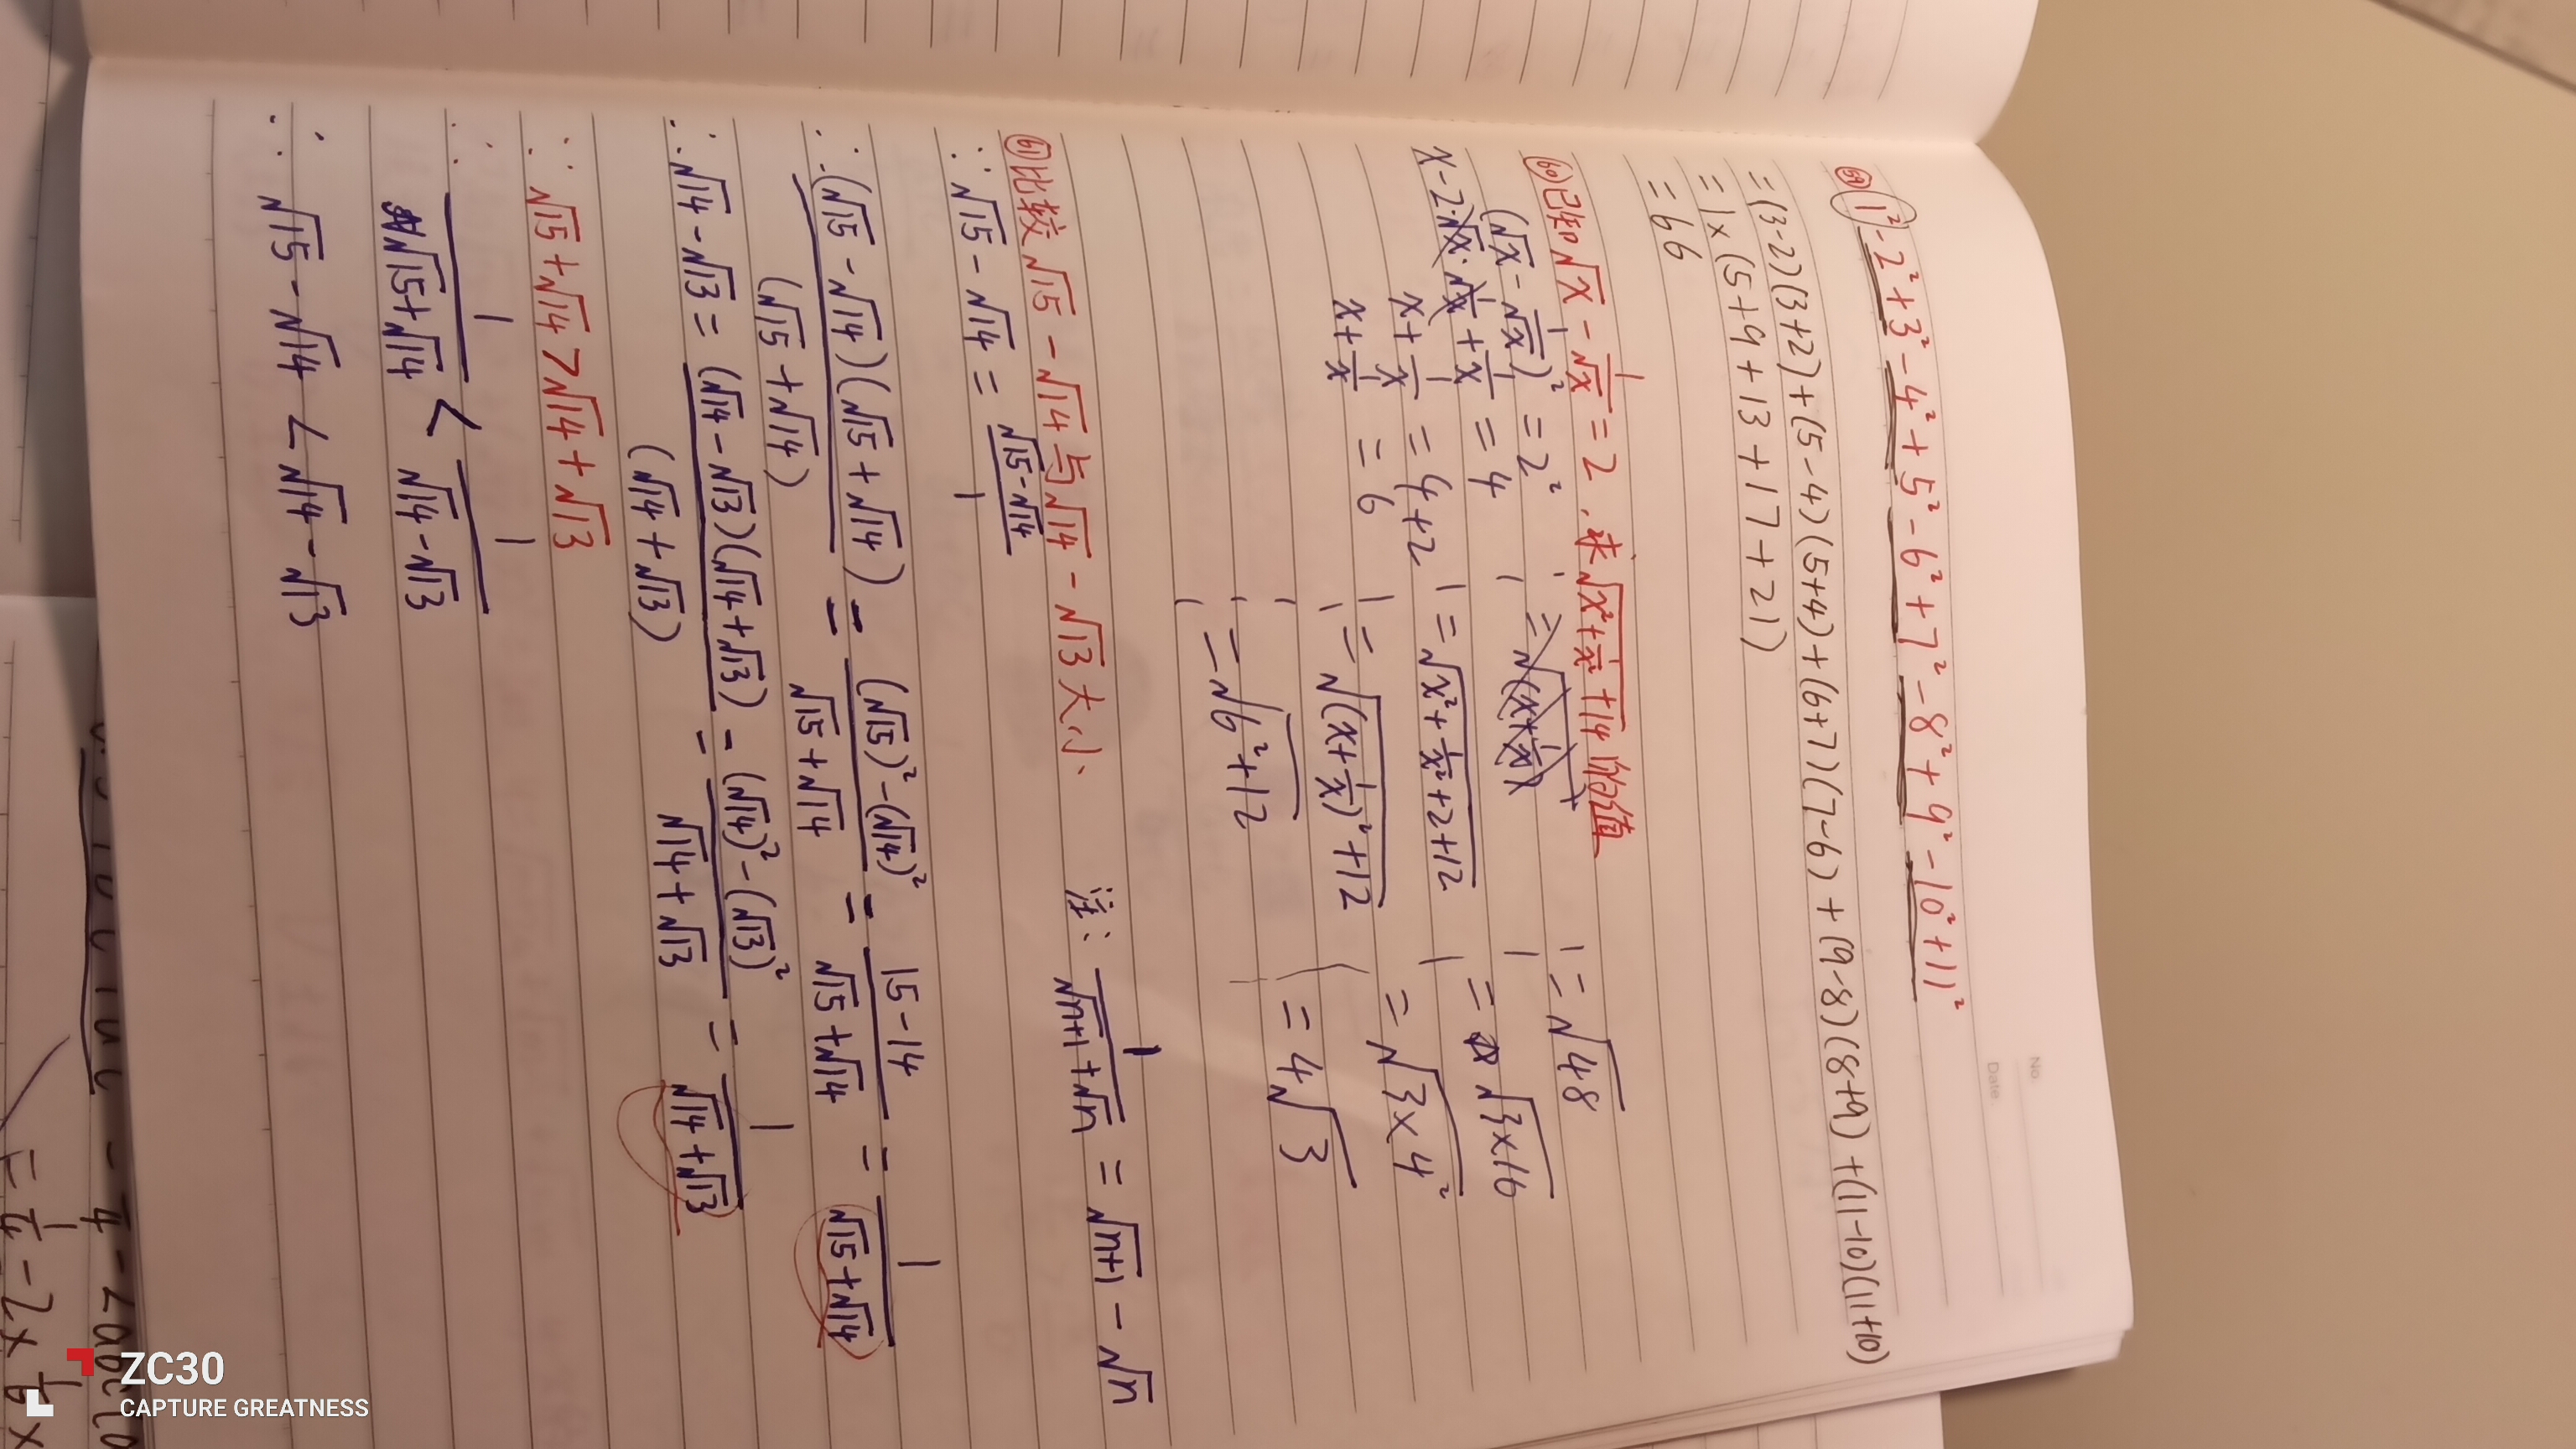 No.
Date
59 1²-2²+3²-4²+5²-6²+7²-8²+9²-10²+11²
=(3-2)(3+2)+(5-4)(5+4)+(6+7)(7-6)+(9-8)(8+9)+(11-10)(11+10)
=1×(5+9+13+17+21)
=66
60 已知√x-1/√x=2,求√(x²+1/x²+14)的值
(√x-1/√x)²=2²
x-2·√x·1/√x+1/x=4
x+1/x=4+2
x+1/x=6
=√(x²+1/x²+2+12)
=√((x+1/x)²+12)
=√(6²+12)
=√48
=√(3×16)
=√(3×4²)
=4√3
61 比较√15-√14与√14-√13大小.
注: 1/(√(n+1)+√n)=√(n+1)-√n
∵√15-√14=(√15-√14)/1
∴(√15-√14)(√15+√14)/(√15+√14)=((√15)²-(√14)²)/(√15+√14)=(15-14)/(√15+√14)=1/(√15+√14)
∴√14-√13=(√14-√13)(√14+√13)/(√14+√13)=((√14)²-(√13)²)/(√14+√13)=1/(√14+√13)
∵√15+√14>√14+√13
∴1/(√15+√14)<1/(√14-√13)
∴√15-√14<√14-√13
=1/4-2×1/6×
ZC30
CAPTURE GREATNESS